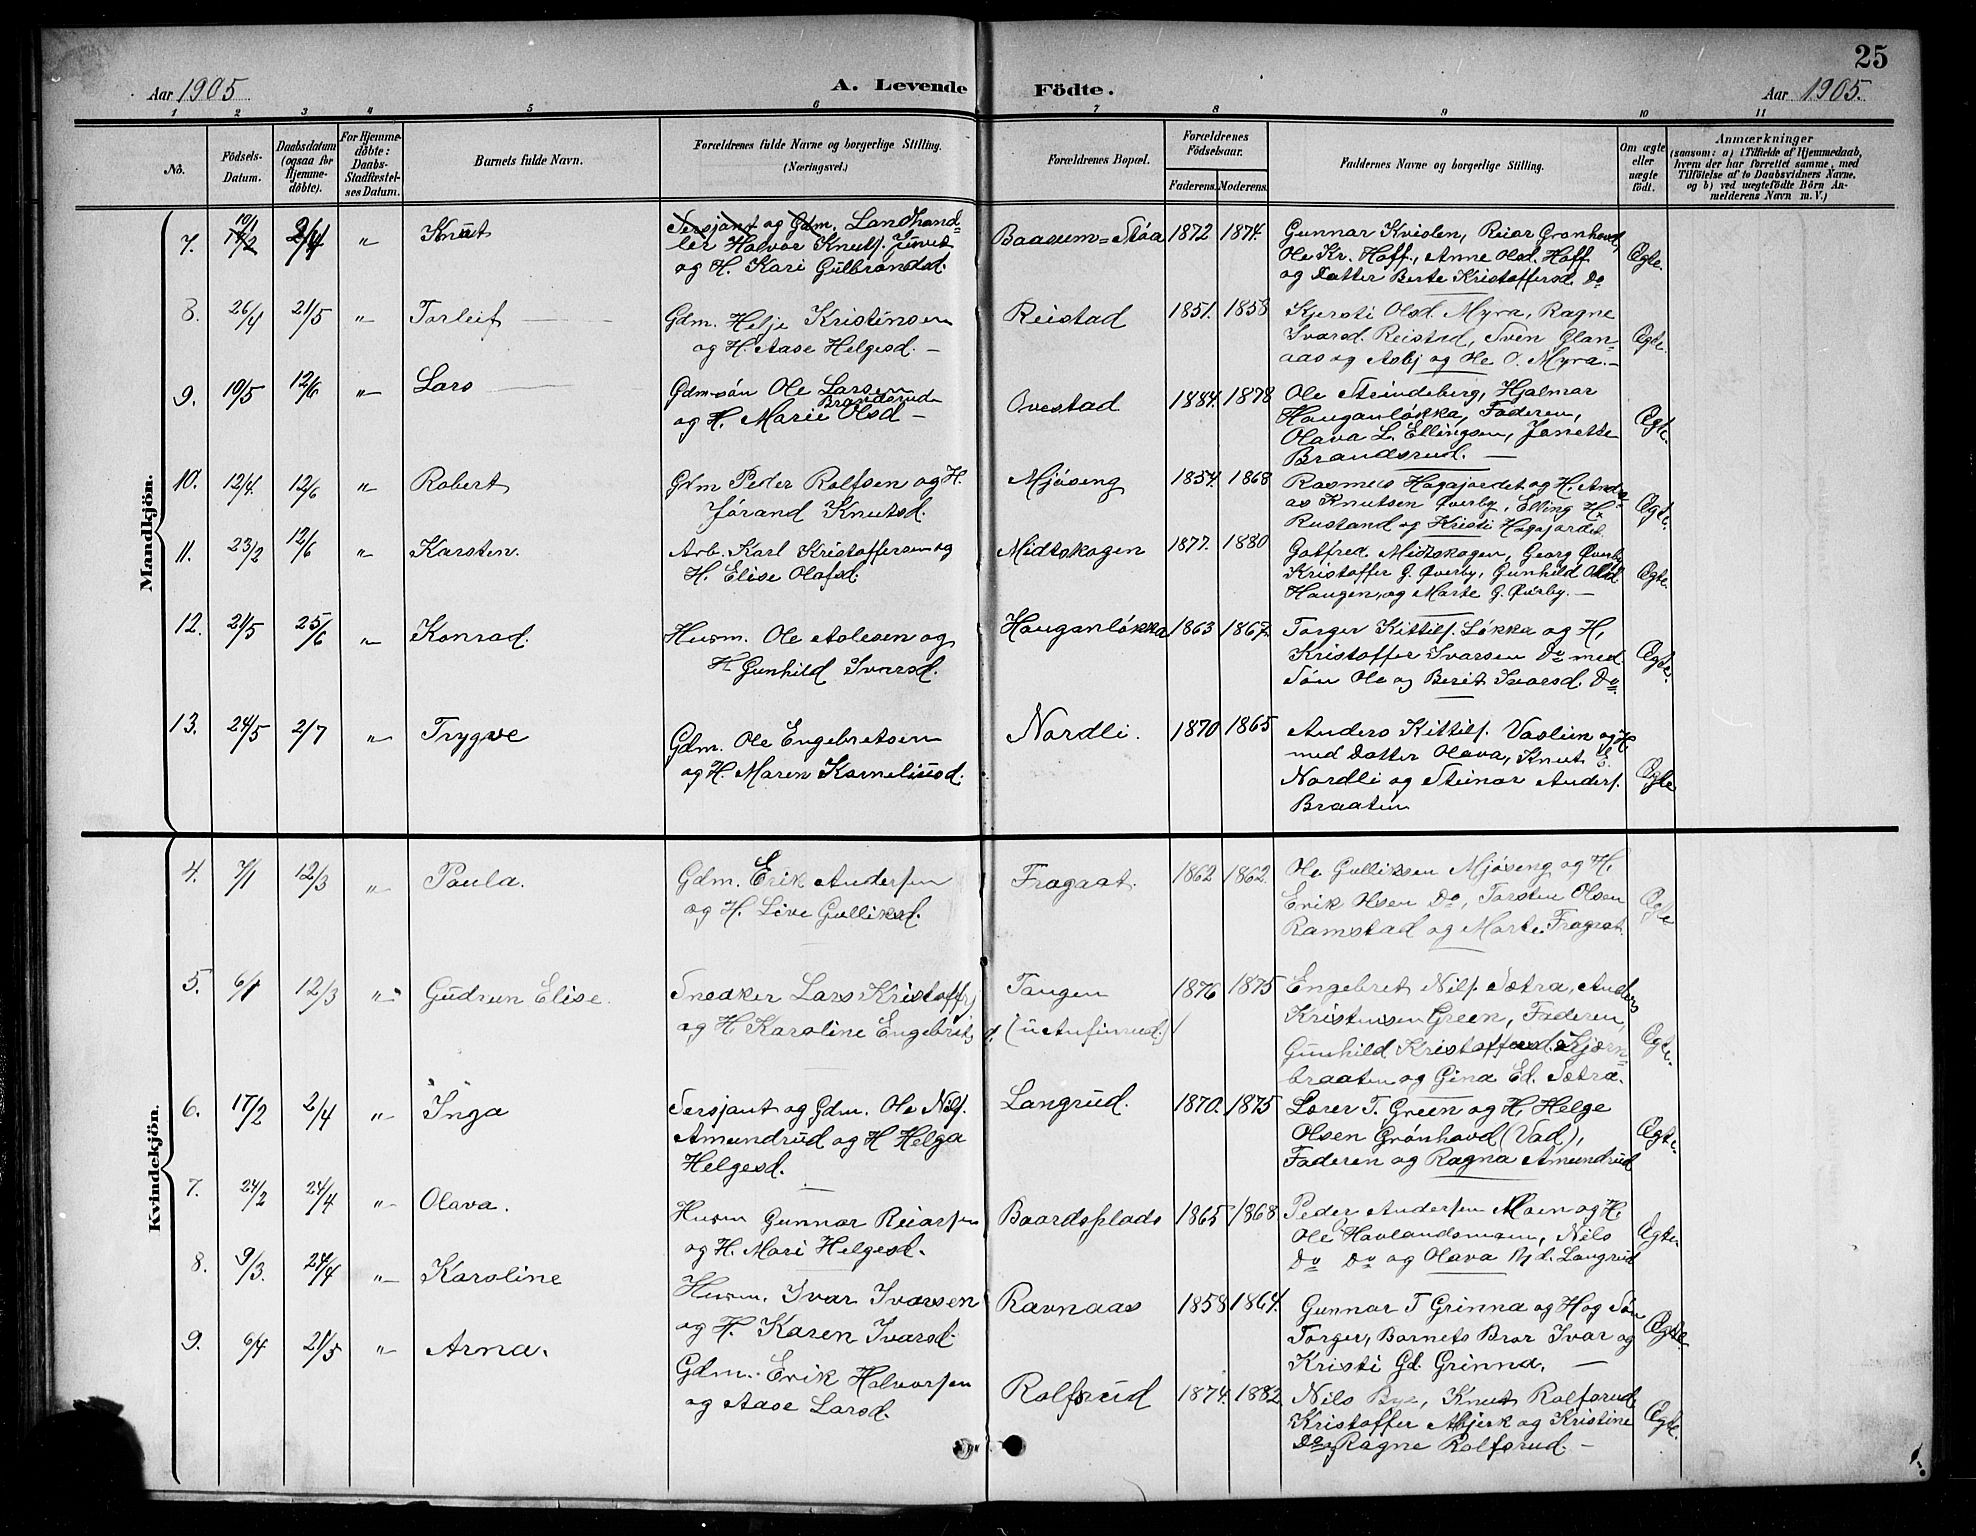 25
Aar 1905
A. Levende Födte.
Aar 1905.
1 2 3 4 5 6 7 8 9 10 11
No.
Födsels-
Datum.
Daabsdatum
(ogsaa for
Hjemme-
döbte).
For Hjemme-
döbte:
Daabs-
Stadfæstel-
ses Datum.
Barnets fulde Navn.
Forældrenes fulde Navne og borgerlige Stilling.
(Næringsvei.)
Forældrenes Bopæl.
Forældrenes
Födselsaar.
Faderens. Moderens.
Faddernes Navne og borgerlige Stilling.
Om ægte
eller
uægte
födt.
Anmærkninger
(saasom: a) i Tilfælde af Hjemmedaab,
hvem der har forrettet samme, med
Tilföielse af to Daabsvidners Navne,
og b) ved uægtefödte Börn An-
melderens Navn m. V.)
Mandkjön.
7. 10/1 2/4 " Knut
Sersjant og Gdm. Landhand-
ler Halvor Knuts.
og H. Kari Gulbrandsd.
Baasum=Støa 1872 1874.
Gunnar Kvislen, Reiar Grønhovd,
Ole Kr. Hoff, Anne Olsd. Hoff
og Datter Berte Kristoffersd. Do
Ægte.
8. 26/4 21/5 " Torleif
Gdm. Helje Kristinsen
og H. Aase Helgesd. –
Reistad 1851. 1858
Kjersti Olsd. Myra, Ragne
Ivarsd. Reistad, Sven Glan-
aas og Asbj og Ole O. Myra. –
Ægte.
9. 10/5 12/6 " Lars
Gdm-søn Ole Larsen
Brandsrud
og H. Marie Olsd –
Ovestad 1884. 1878
Ole Steindeberg, Hjalmar
Hauganløkka, Faderen,
Olava L. Ellingsen, Janette
Brandsrud. –
Ægte.
10. 12/4. 12/6 " Robert
Gdm Peder Rolfsen og H.
Jørand Knutsd.
Mjøseng 1854. 1868
Rasmus Hagajordet og H. And-
as Knutsen Øverby, Elling H.
Rustand og Kristi Hagajordet
Ægte.
11. 23/2 12/6 " Karsten.
Arb. Karl Kristoffersen og
H. Elise Olafsd.
Midtskogen 1877. 1880
Gotfred Midtskogen, Georg Øverby
Kristoffer G. Øverby, Gunhild Olsd.
Haugen, og Marte G. Øverby. –
Ægte.
12. 21/5 25/6 " Konrad.
Husm. Ole Aslesen og
H Gunhild Ivarsd.
Hauganløkka 1863 1867.
Torger Kittils. Løkka og H.
Kristoffer Ivarsen Do med
Søn Ole og Berit Ivarsd. Do
Ægte.
13. 24/5 2/7 " Trygve
Gdm. Ole Engebretsen
og H. Maren Korneliusd.
Nordli. 1870 1865
Anders Kittils. Vaslien og H.
med Datter Olava, Knut E.
Nordli og Steinar Anders.
Braaten
Ægte
Kvindekjön.
4. 7/1 12/3 " Paula.
Gdm. Erik Andersen
og H. Live Gulliksd.
Fragaat. 1862 1862.
Ole Gulliksen Mjøseng og H.
Erik Olsen Do, Torsten Olsen
Ramstad og Marte Fragaat.
Ægte
5. 6/1 12/3 " Gudrun Elise.
Snedker Lars Kristoffs
og H Karoline Engebrets d.
Tangen
(u Anfinrud.) 1876 1875
Engebret Nils. Sætra, Anders
Kristensen Green, Faderen,
Gunhild Kristoffersd. Kjærn-
braaten og Gina Ed. Sætra.
Ægte.
6. 17/2 2/4 " Inga
Sersjant og Gdm. Ole Nils.
Amundrud og H Helga
Helgesd.
Langrud. 1870. 1875
Lorer T. Green og H, Helge
Olsen Grønhovd (Vad),
Faderen og Ragna Amundrud
Ægte.
7. 24/2 24/4 " Olava.
Husm Gunnar Reiarsen
og H. Mari Helgesd.
Baardsplads 1865 1868
Peder Andersen Moen og H.
Ole Havlandsmoen, Nils
Do Do og Olava Nd. Langrud
Ægte.
8. 9/3. 24/4 " Karoline
Husm. Ivar Ivarsen
og H. Karen Ivarsd.
Ravnaas 1858 1864.
Gunnar T Grinna og H og Søn
Torger, Barnets Bror Ivar og
Kristi Gd. Grinna. –
Ægte
9. 6/4 21/5 " Arna.
Gdm. Erik Halvorsen
og Aase Larsd.
Rolfsrud 1874. 1882.
Nils Bye, Knut Rolfsrud
Kristoffer og Kristine
Do og Ragne Rolfsrud. –
Ægte.